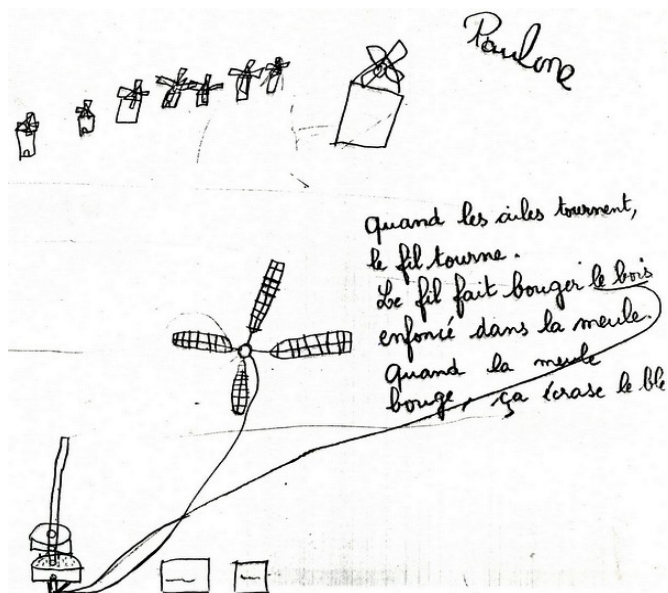 Paulone
quand les ailes tournent,
le fil tourne.
Le fil fait bouger le bois
enfoncé dans la meule.
Quand la meule
bouge, ça écrase le blé